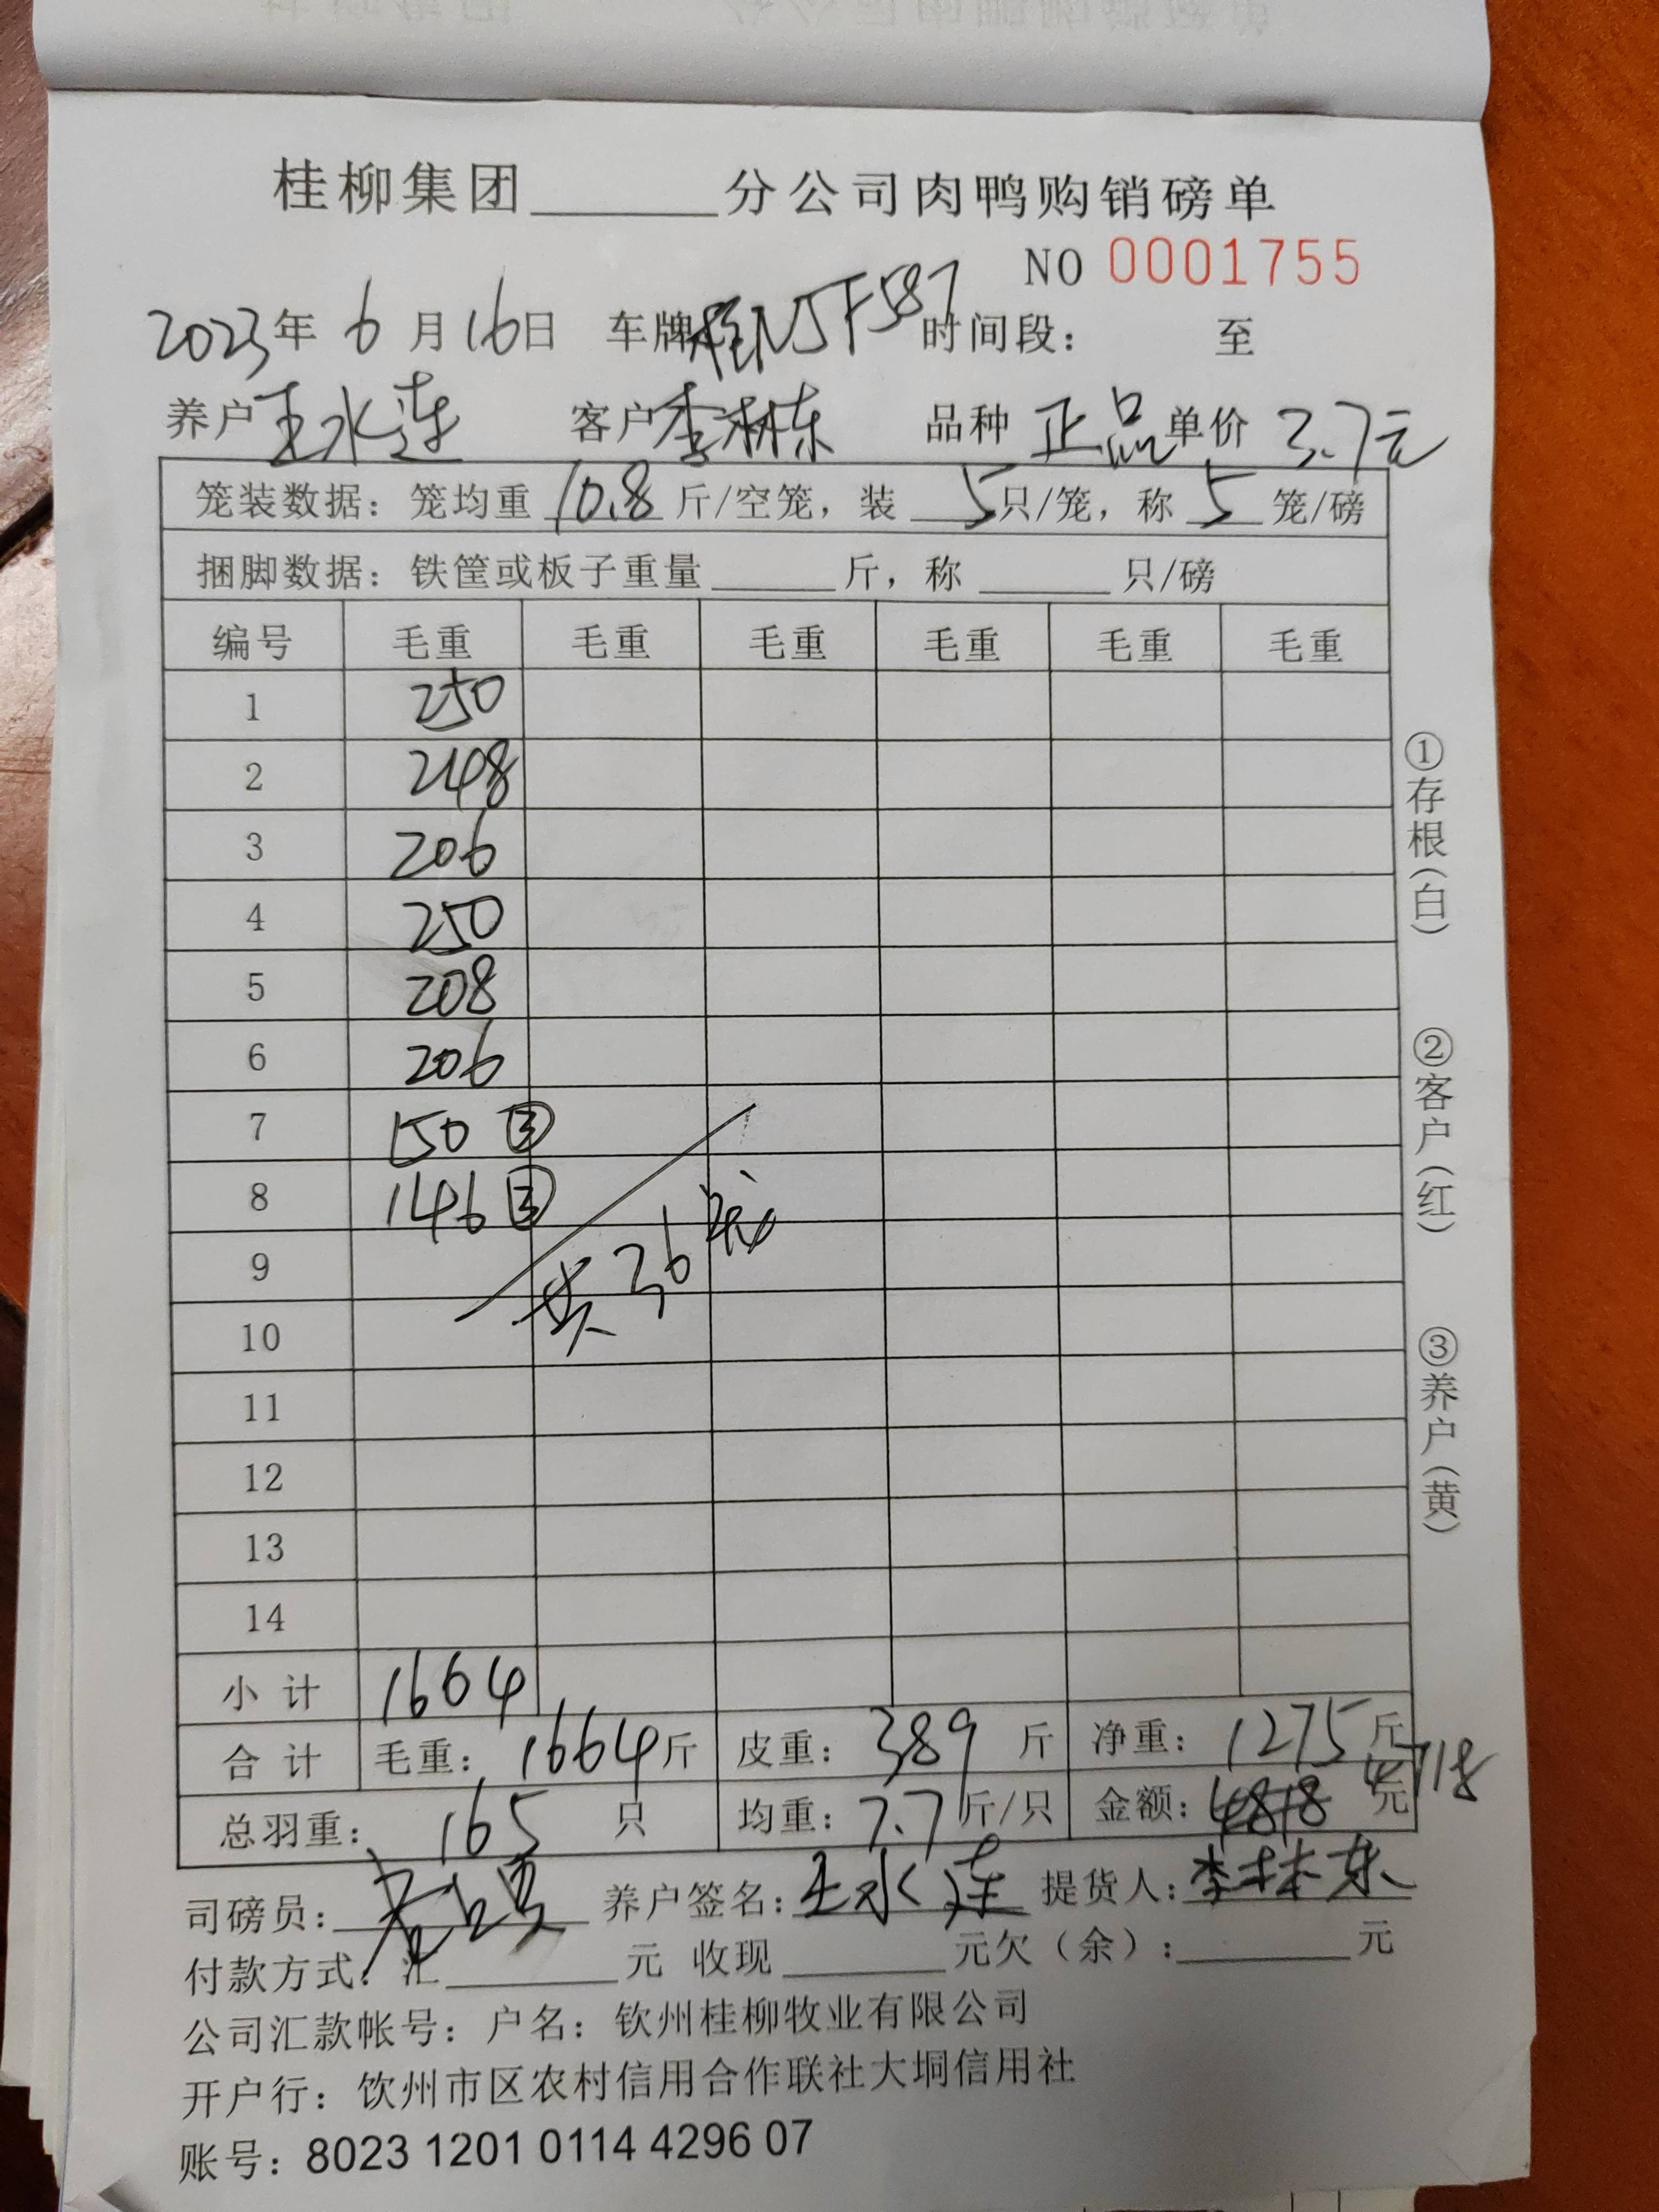 桂柳集团______分公司肉鸭购销磅单
NO 0001755
2023年 6 月 16日 车牌桂NJF587 时间段： 至
养户 王水连 客户 李林东 品种 正品 单价 3.7元
笼装数据：笼均重 10.8 斤/空笼，装 5 只/笼，称 5 笼/磅
捆脚数据：铁筐或板子重量______斤，称______只/磅
编号 毛重 毛重 毛重 毛重 毛重 毛重
1 250
2 248
3 206
4 250
5 208
6 206
7 150 ③
8 146 ③
9
共36笼
10
11
12
13
14
小计 1664
合计 毛重：1664斤 皮重：389 斤 净重：1275斤
总羽重：165 只 均重：7.7斤/只 金额：4818 元 4718
司磅员： 养户签名：王水连 提货人：李林东
付款方式：汇______元 收现______元欠（余）：______元
公司汇款帐号：户名：钦州桂柳牧业有限公司
开户行：饮州市区农村信用合作联社大垌信用社
账号：8023 1201 0114 4296 07
①存根（白）
②客户（红）
③养户（黄）